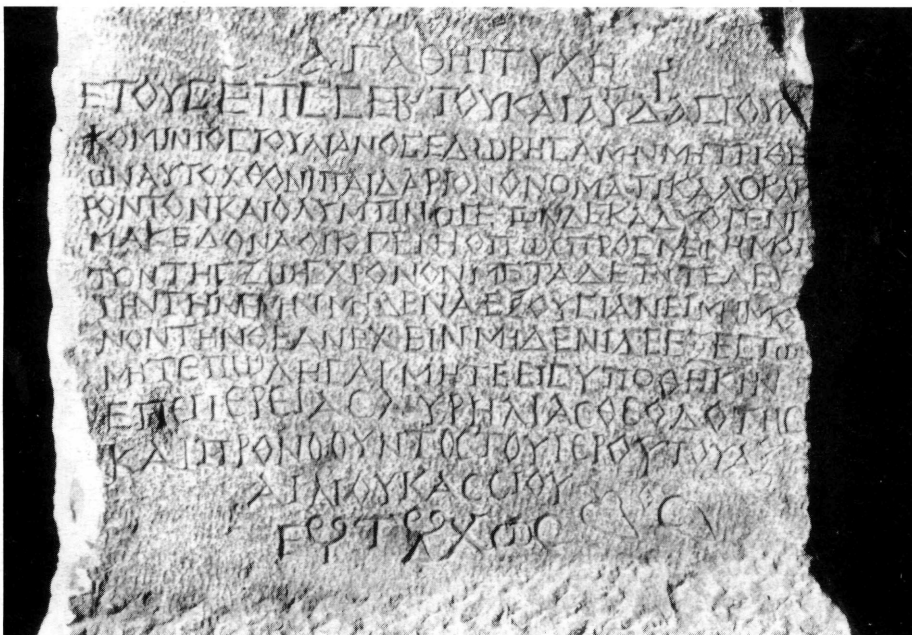 ΑΓΑΘΗΙ ΤΥΧΗ
ΕΤΟΥC ΕΠC CΕΒ ΤΟΥ ΚΑΙ ΔΑCΙΟΥ
ΚΟΜΙΝΙΟC ΙΟΥΛΙΑΝΟC ΕΔΩΡΗCΑΜΗΝ ΜΗΤΡΙ ΘΕ
ΩΝ ΑΥΤΟΧΘΟΝΙ ΠΑΙΔΑΡΙΟΝ ΟΝΟΜΑΤΙ ΚΑΛΟΚΑΙ
ΡΟΝ ΤΟΝ ΚΑΙ ΟΛΥΜΠΙΝ ΩC ΕΤΩΝ ΔΕΚΑΔΥΟ ΓΕΝΙ
ΜΑΚΕΔΟΝΑ ΟΠΩC ΠΡΟCΜΕΝΗ ΜΟΙ
ΤΟΝ ΤΗC ΖΩΗC ΧΡΟΝΟΝ ΜΕΤΑ ΔΕ ΤΗΝ ΤΕΛΕΥ
ΤΗΝ ΤΗΝ ΕΜΗΝ ΜΗΔΕΝΑ ΕΞΟΥCΙΑΝ ΕΙ ΜΗ ΜΟ
ΝΟΝ ΤΗΝ ΘΕΑΝ ΕΧΕΙΝ ΜΗΔΕΝΙ ΔΕ ΕΞΕCΤΩ
ΜΗΤΕ ΠΩΛΗCΑΙ ΜΗΤΕ ΕΙC ΥΠΟΘΗΚΗΝ
ΕΠΕΙ ΙΕΡΕΙΑC ΑΥΡΗΛΙΑC ΘΕΟΔΟΤΗC
ΚΑΙ ΠΡΟΝΟΟΥΝΤΟC ΤΟΥ ΙΕΡΟΥ ΤΟΥ
ΑΙΛΙΟΥ ΚΑCCΙΟΥ
ΕΥΤΥΧΩC